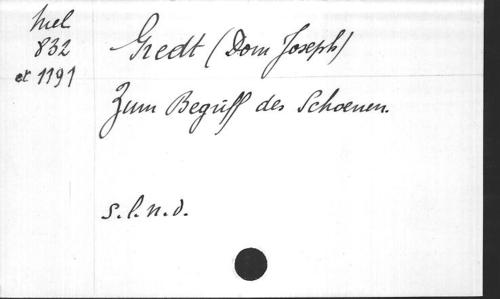 Mel
832
et 1191
Gredt (Dom Joseph)
Zum Begriff des Schoenen.
s.l.n.d.